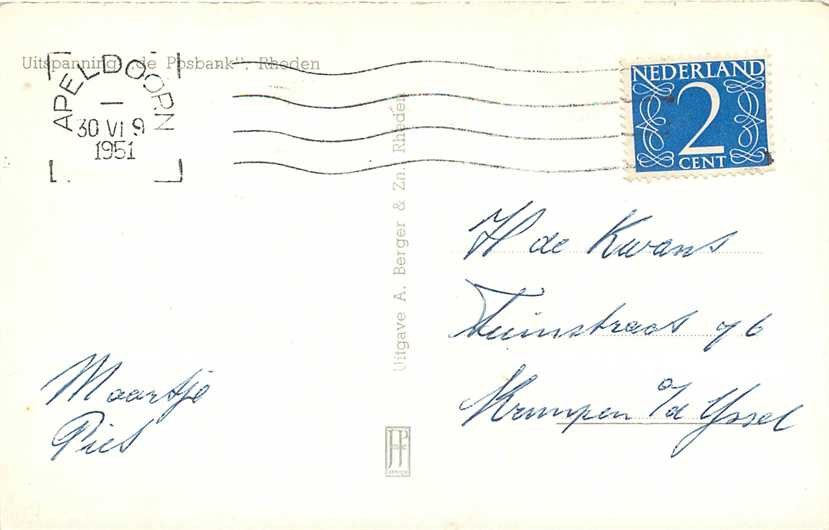 Uitspanning „de Posbank", Rheden
APELDOORN
30 VI 9
1951
NEDERLAND
2
CENT
Uitgave A. Berger & Zn. Rheden
H de Kwans
Tuinstraat 76
Krimpen a/d Yssel
Maartje
Piet